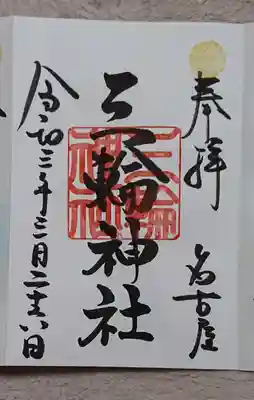 奉拝
名古屋
三輪神社
三輪
神社
令和三年三月二十八日